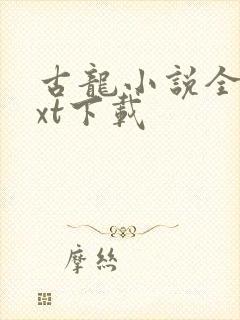 古龍小說全
xt下載
摩絲